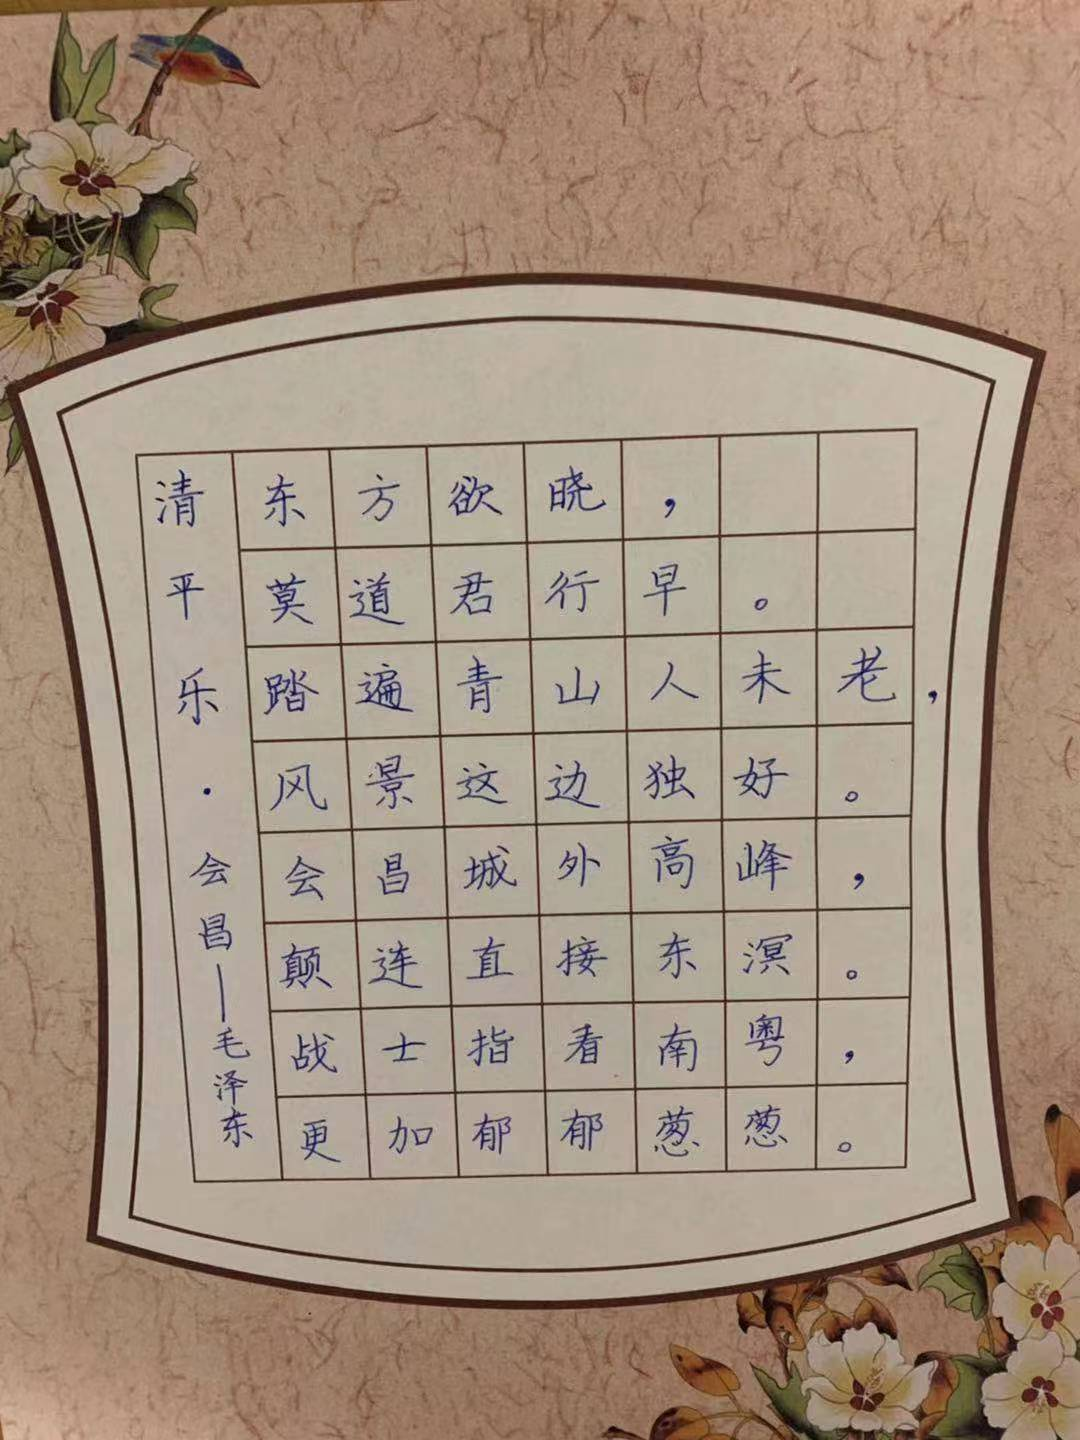 清平乐·会昌——毛泽东
东方欲晓，
莫道君行早。
踏遍青山人未老，
风景这边独好。
会昌城外高峰，
颠连直接东溟。
战士指看南粤，
更加郁郁葱葱。